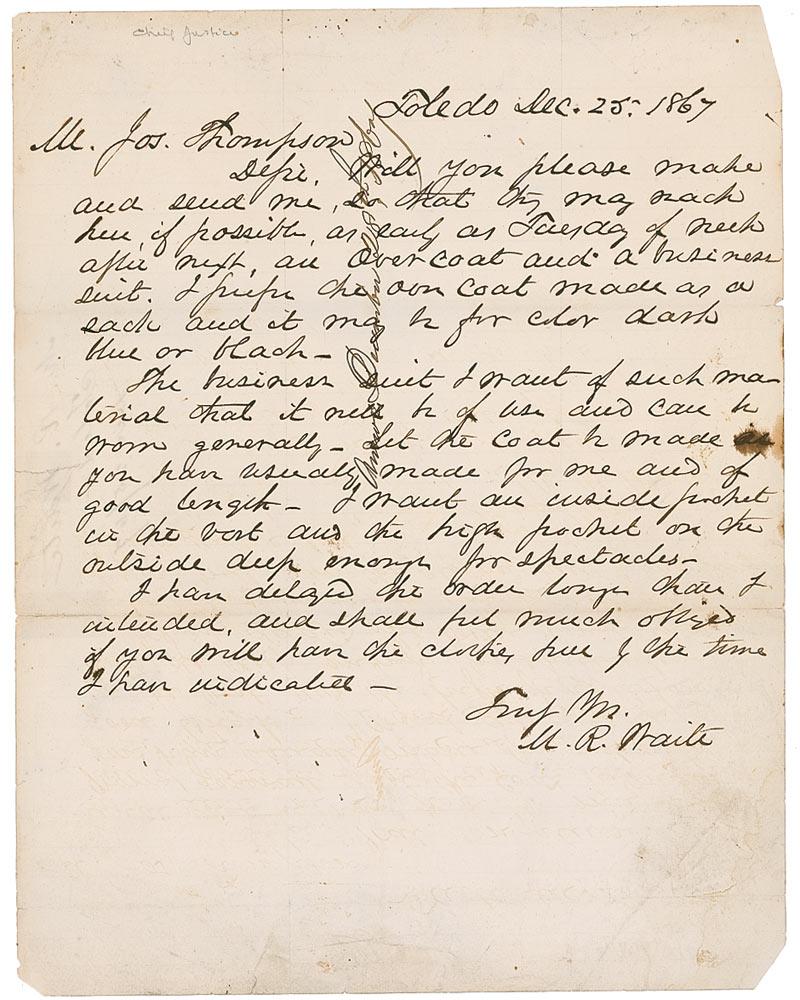 Chief Justice
Toledo Dec. 25. 1867
Mr. Jos. Thompson
Dr Sir, Will you please make
and send me, so that they may reach
here, if possible, as early as Tuesday of week
after next, an Over coat and a business
suit. I prefer the over coat made as a
sack and it may be for color dark
blue or black -
The business suit I want of such ma-
terial that it will be of use and can be
worn generally - Let the coat be made as
you have usually made for me and of
good length - I want an inside pocket
in the vest and the high pocket on the
outside deep enough for spectacles -
I have delayed the order longer than I
intended, and shall feel much obliged
if you will have the clothes here by the time
I have indicated -
Truly Yrs.
M. R. Waite